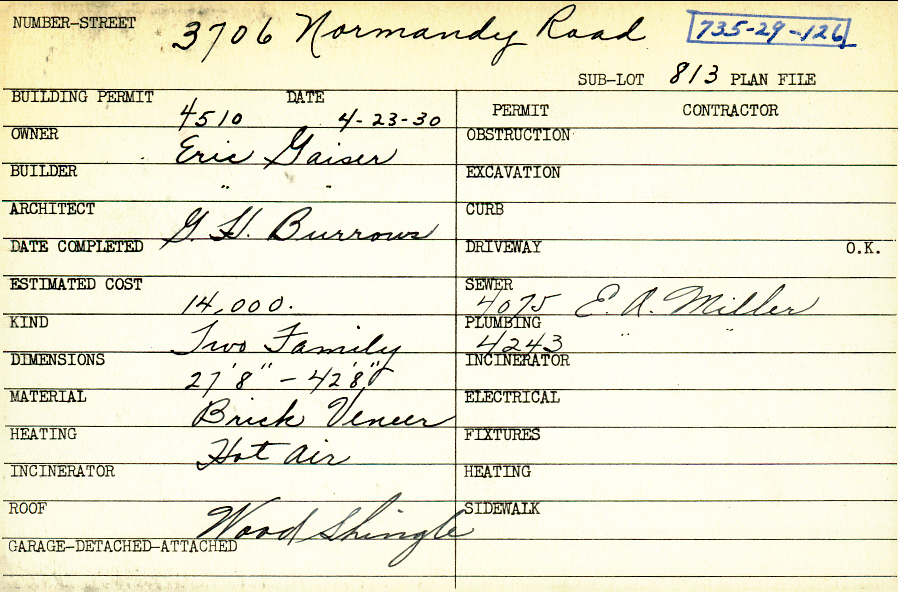 NUMBER-STREET 3706 Normandy Road 735-29-126
SUB-LOT 813 PLAN FILE
BUILDING PERMIT 4510 DATE 4-23-30
PERMIT CONTRACTOR
OWNER Eric Gaiser
OBSTRUCTION
BUILDER " "
EXCAVATION
ARCHITECT G. H. Burrows
CURB
DATE COMPLETED
DRIVEWAY O.K.
ESTIMATED COST 14,000.
SEWER 4075 E. A. Miller
KIND Two Family
PLUMBING 4243 " "
DIMENSIONS 27'8" - 42'8"
INCINERATOR
MATERIAL Brick Veneer
ELECTRICAL
HEATING Hot Air
FIXTURES
INCINERATOR
HEATING
ROOF Wood Shingle
SIDEWALK
GARAGE-DETACHED-ATTACHED